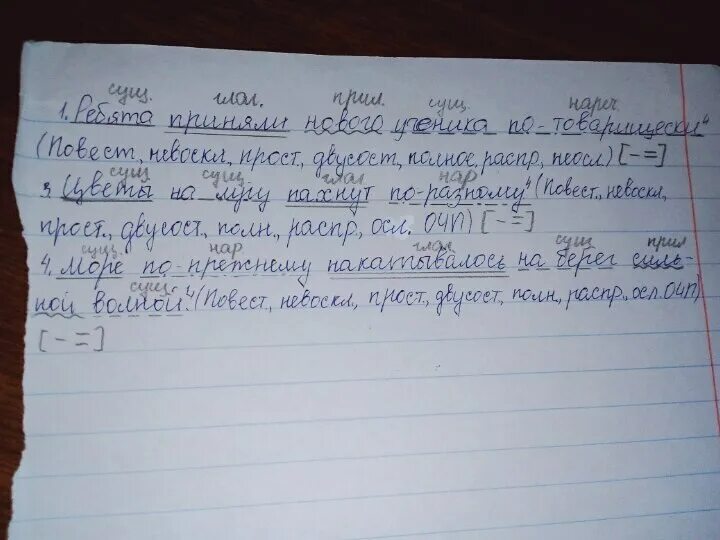 сущ. глаг. прил. сущ. нареч.
1. Ребята приняли нового ученика по-товарищески⁴
(Повест., невоскл., прост., двусост., полное, распр., неосл.) [- =]
сущ сущ глаг нар
3. Цветы на лугу пахнут по-разному⁴ (Повест., невоскл,
прост., двусост., полн., распр., осл. ОЧП) [- =]
сущ. нар. глаг. сущ прил
4. Море по-прежнему накатывалось на берег силь-
сущ.
ной волной.⁴ (Повест, невоскл., прост, двусост, полн., распр., осл. ОЧП)
[- =]